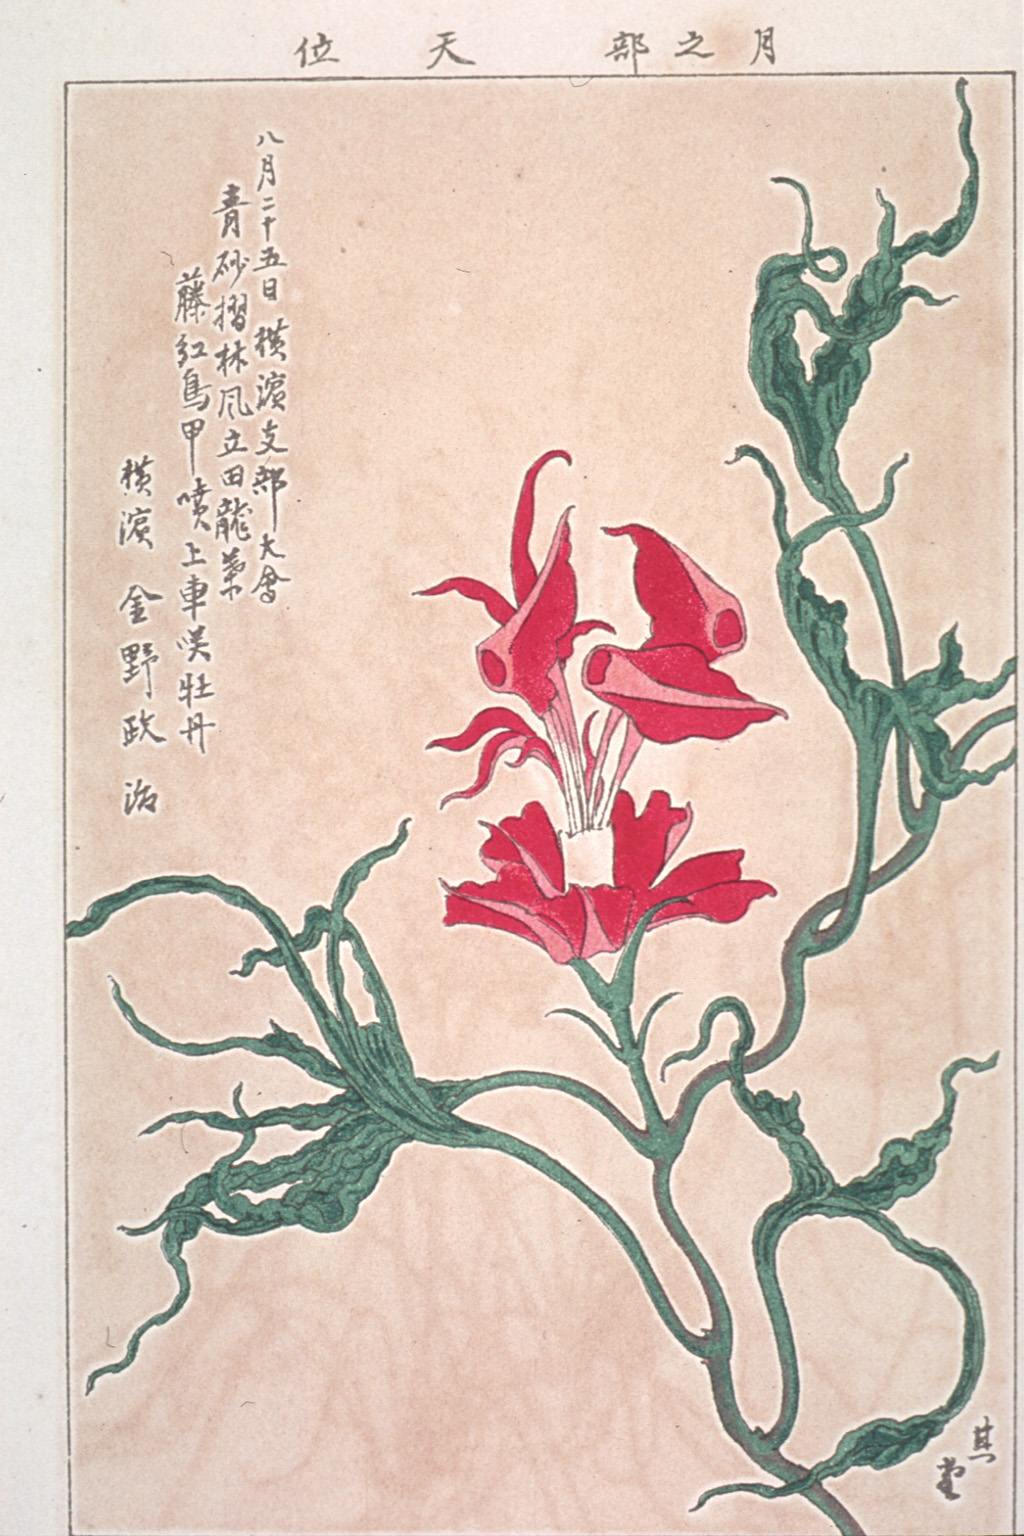 月之部 天位
八月二十五日横濱支部大會
青砂摺林風立田龍葉
藤紅鳥甲噴上車咲牡丹
横濱 金野政治
其堂